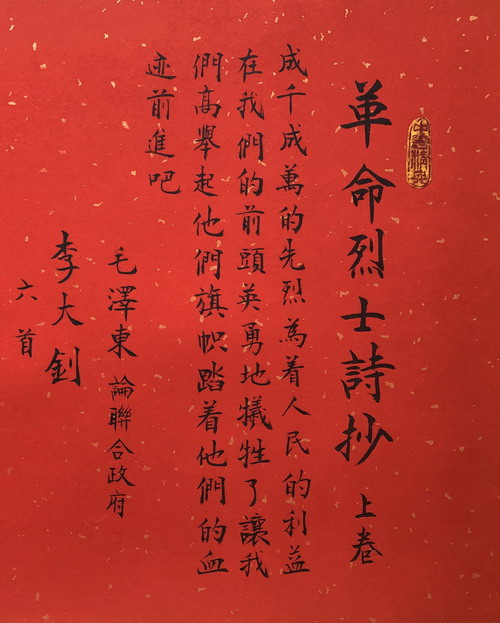 革命烈士詩抄 上卷
成千成萬的先烈為着人民的利益
在我們的前頭英勇地犧牲了讓我
們高舉起他們旗幟踏着他們的血
迹前進吧
毛澤東 論聯合政府
李大釗
六首